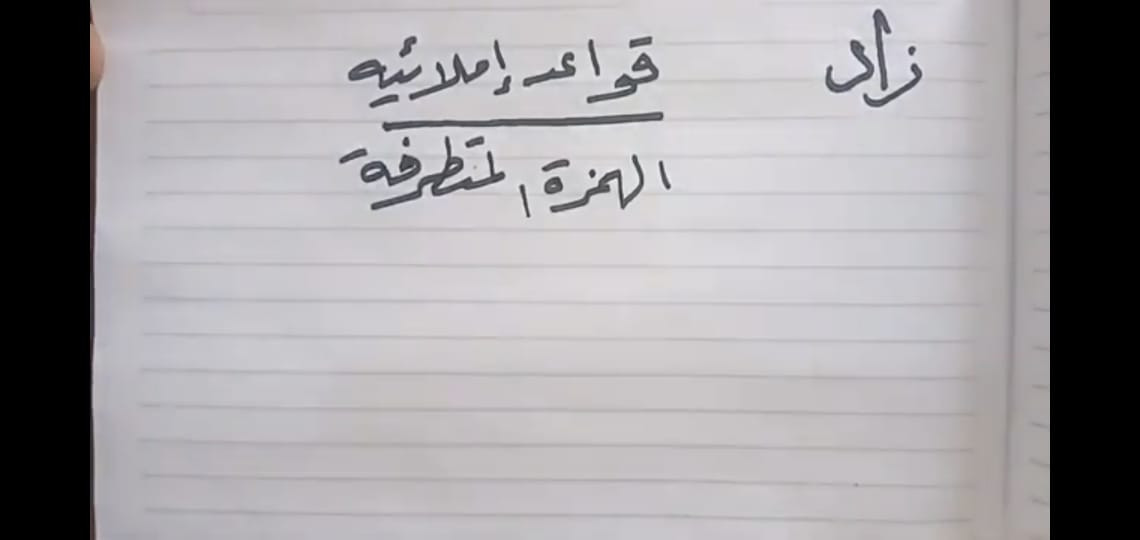 زاد
قواعد إملائيه
الهمزة المتطرفة